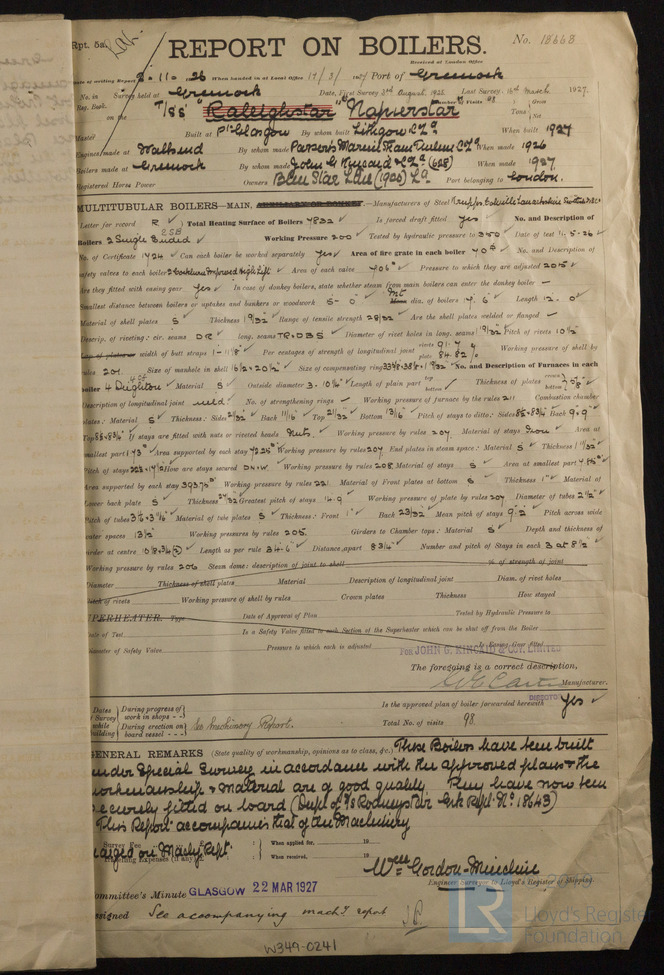 Rpt. 5a.
REPORT ON BOILERS.
No. 18668
Received at London Office
Date of writing Report 8-11-1926 When handed in at Local Office 17/3/1927 Port of Greenock
No. in Survey held at Greenock Date, First Survey August, 1925 Last Survey March 1927.
Reg. Book. on the T/SS "Raleighstar" "Napierstar" Number of Visits 98 Gross Net Tons
Master Built at Pt Glasgow By whom built Lithgow Ld When built 1927
Engines made at Wallsend By whom made Parsons Marine Steam Turbine Co Ld When made 1926
Boilers made at Greenock By whom made John G Kincaid & Co Ld (628) When made 1927.
Registered Horse Power Owners Blue Star Line (1920) Ld Port belonging to London.
MULTITUBULAR BOILERS—MAIN, AUXILIARY OR DONKEY.—Manufacturers of Steel Krupps, Colville Lanarkshire
Letter for record R Total Heating Surface of Boilers 4832 Is forced draft fitted yes No. and Description of
Boilers 2 Single Ended 2SB Working Pressure 200 Tested by hydraulic pressure to 350 Date of test 11.5.26
No. of Certificate 1724 Can each boiler be worked separately yes Area of fire grate in each boiler 40 No. and Description of
safety valves to each boiler 2 Cockburn Improved High Lift Area of each valve 7.06 Pressure to which they are adjusted 205
Are they fitted with easing gear yes In case of donkey boilers, state whether steam from main boilers can enter the donkey boiler —
Smallest distance between boilers or uptakes and bunkers or woodwork 5-0 Mean dia. of boilers Length 12-0
Material of shell plates S Thickness 1 9/32 Range of tensile strength 28/32 Are the shell plates welded or flanged —
Descrip. of riveting: cir. seams DR long. seams TR.DBS Diameter of rivet holes in long. seams 1 9/32 Pitch of rivets 10 1/2
Lap of plates or width of butt straps Per centages of strength of longitudinal joint rivets 91.7 plate 84.82 Working pressure of shell by
rules 204. Size of manhole in shell 16 1/2 x 20 1/2 Size of compensating ring No. and Description of Furnaces in each
boiler 4 Deighton Material S Outside diameter 3-10 Length of plain part top bottom Thickness of plates crown bottom
Description of longitudinal joint weld No. of strengthening rings — Working pressure of furnace by the rules 211 Combustion chamber
plates: Material S Thickness: Sides 21/32 Back 11/16 Top 21/32 Bottom 13/16 Pitch of stays to ditto: Sides Back
Top If stays are fitted with nuts or riveted heads Nuts Working pressure by rules 207 Material of stays Iron Area at
smallest part Area supported by each stay Working pressure by rules 207 End plates in steam space: Material S Thickness
Pitch of stays How are stays secured DN+W Working pressure by rules 208 Material of stays S Area at smallest part
Area supported by each stay Working pressure by rules 221 Material of Front plates at bottom S Thickness 1" Material of
Lower back plate S Thickness Greatest pitch of stays Working pressure of plate by rules 207 Diameter of tubes 2 1/2
Pitch of tubes Material of tube plates S Thickness: Front 1" Back 23/32 Mean pitch of stays 9 1/2 Pitch across wide
water spaces 13 1/2 Working pressures by rules 205. Girders to Chamber tops: Material S Depth and thickness of
girder at centre Length as per rule Distance apart 8 3/4 Number and pitch of Stays in each 3 at 8 1/2
Working pressure by rules 206 Steam dome: description of joint to shell % of strength of joint
Diameter Thickness of shell plates Material Description of longitudinal joint Diam. of rivet holes
Pitch of rivets Working pressure of shell by rules Crown plates Thickness How stayed
SUPERHEATER. Type Date of Approval of Plan Tested by Hydraulic Pressure to
Date of Test Is a Safety Valve fitted to each Section of the Superheater which can be shut off from the Boiler
Diameter of Safety Valve Pressure to which each is adjusted Is Easing Gear fitted
FOR JOHN G. KINCAID & COY. LIMITED
The foregoing is a correct description,
Manufacturer.
DIRECTOR
Dates of Survey while building During progress of work in shops -- During erection on board vessel --- See Machinery Report.
Is the approved plan of boiler forwarded herewith yes
Total No. of visits 98
GENERAL REMARKS (State quality of workmanship, opinions as to class, &c.) These Boilers have been built
under Special Survey in accordance with the approved plans & the
workmanship & material are of good quality. They have now been
securely fitted on board (Dupl. of T/S Rodneystar Grk Rept. No. 18643)
This Report accompanies that of the Machinery
Survey Fee When applied for, 19
charged on Machy Rept.
Travelling Expenses (if any) When received, 19
Wm Gordon-Minchin
Engineer Surveyor to Lloyd's Register of Shipping.
Committee's Minute GLASGOW 22 MAR 1927
Assigned See accompanying machy report
W349-0241
LR Lloyd's Register Foundation